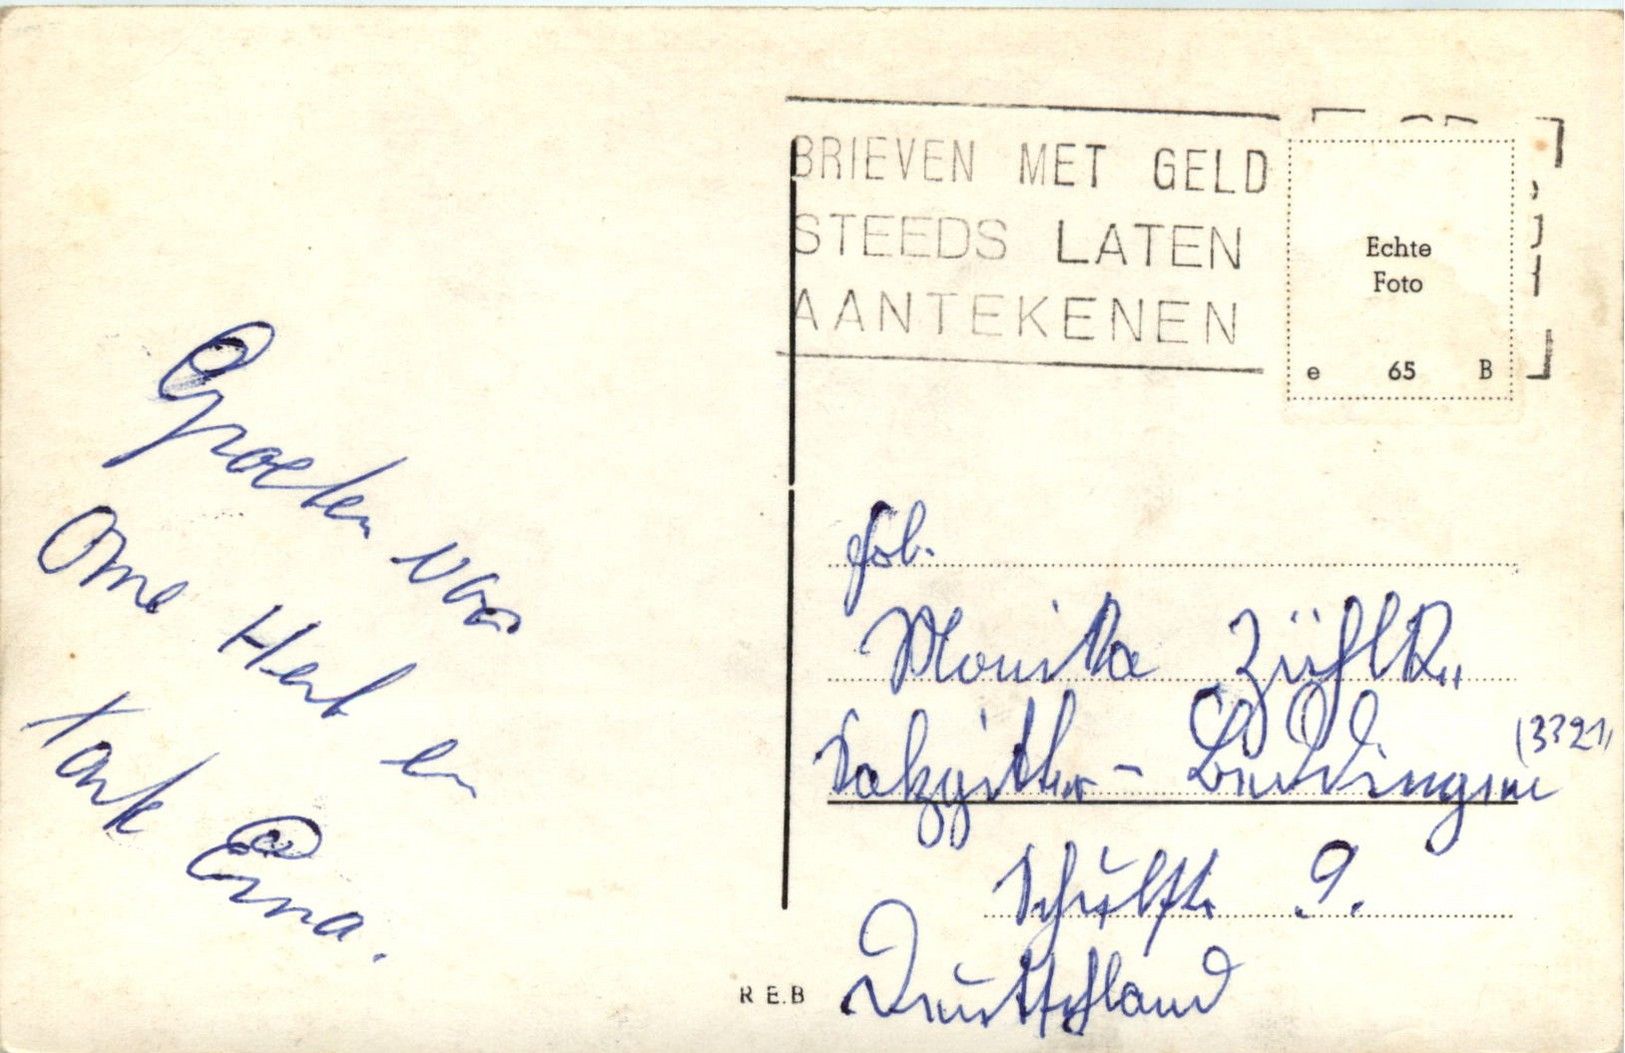 BRIEVEN MET GELD
STEEDS LATEN
AANTEKENEN
Echte
Foto
e 65 B
Groeten van
Ome Herb en
tante Erna.
Monika
Salzgitter - Beddingen (3321)
Schulstr. 9.
Deutschland
R.E.B